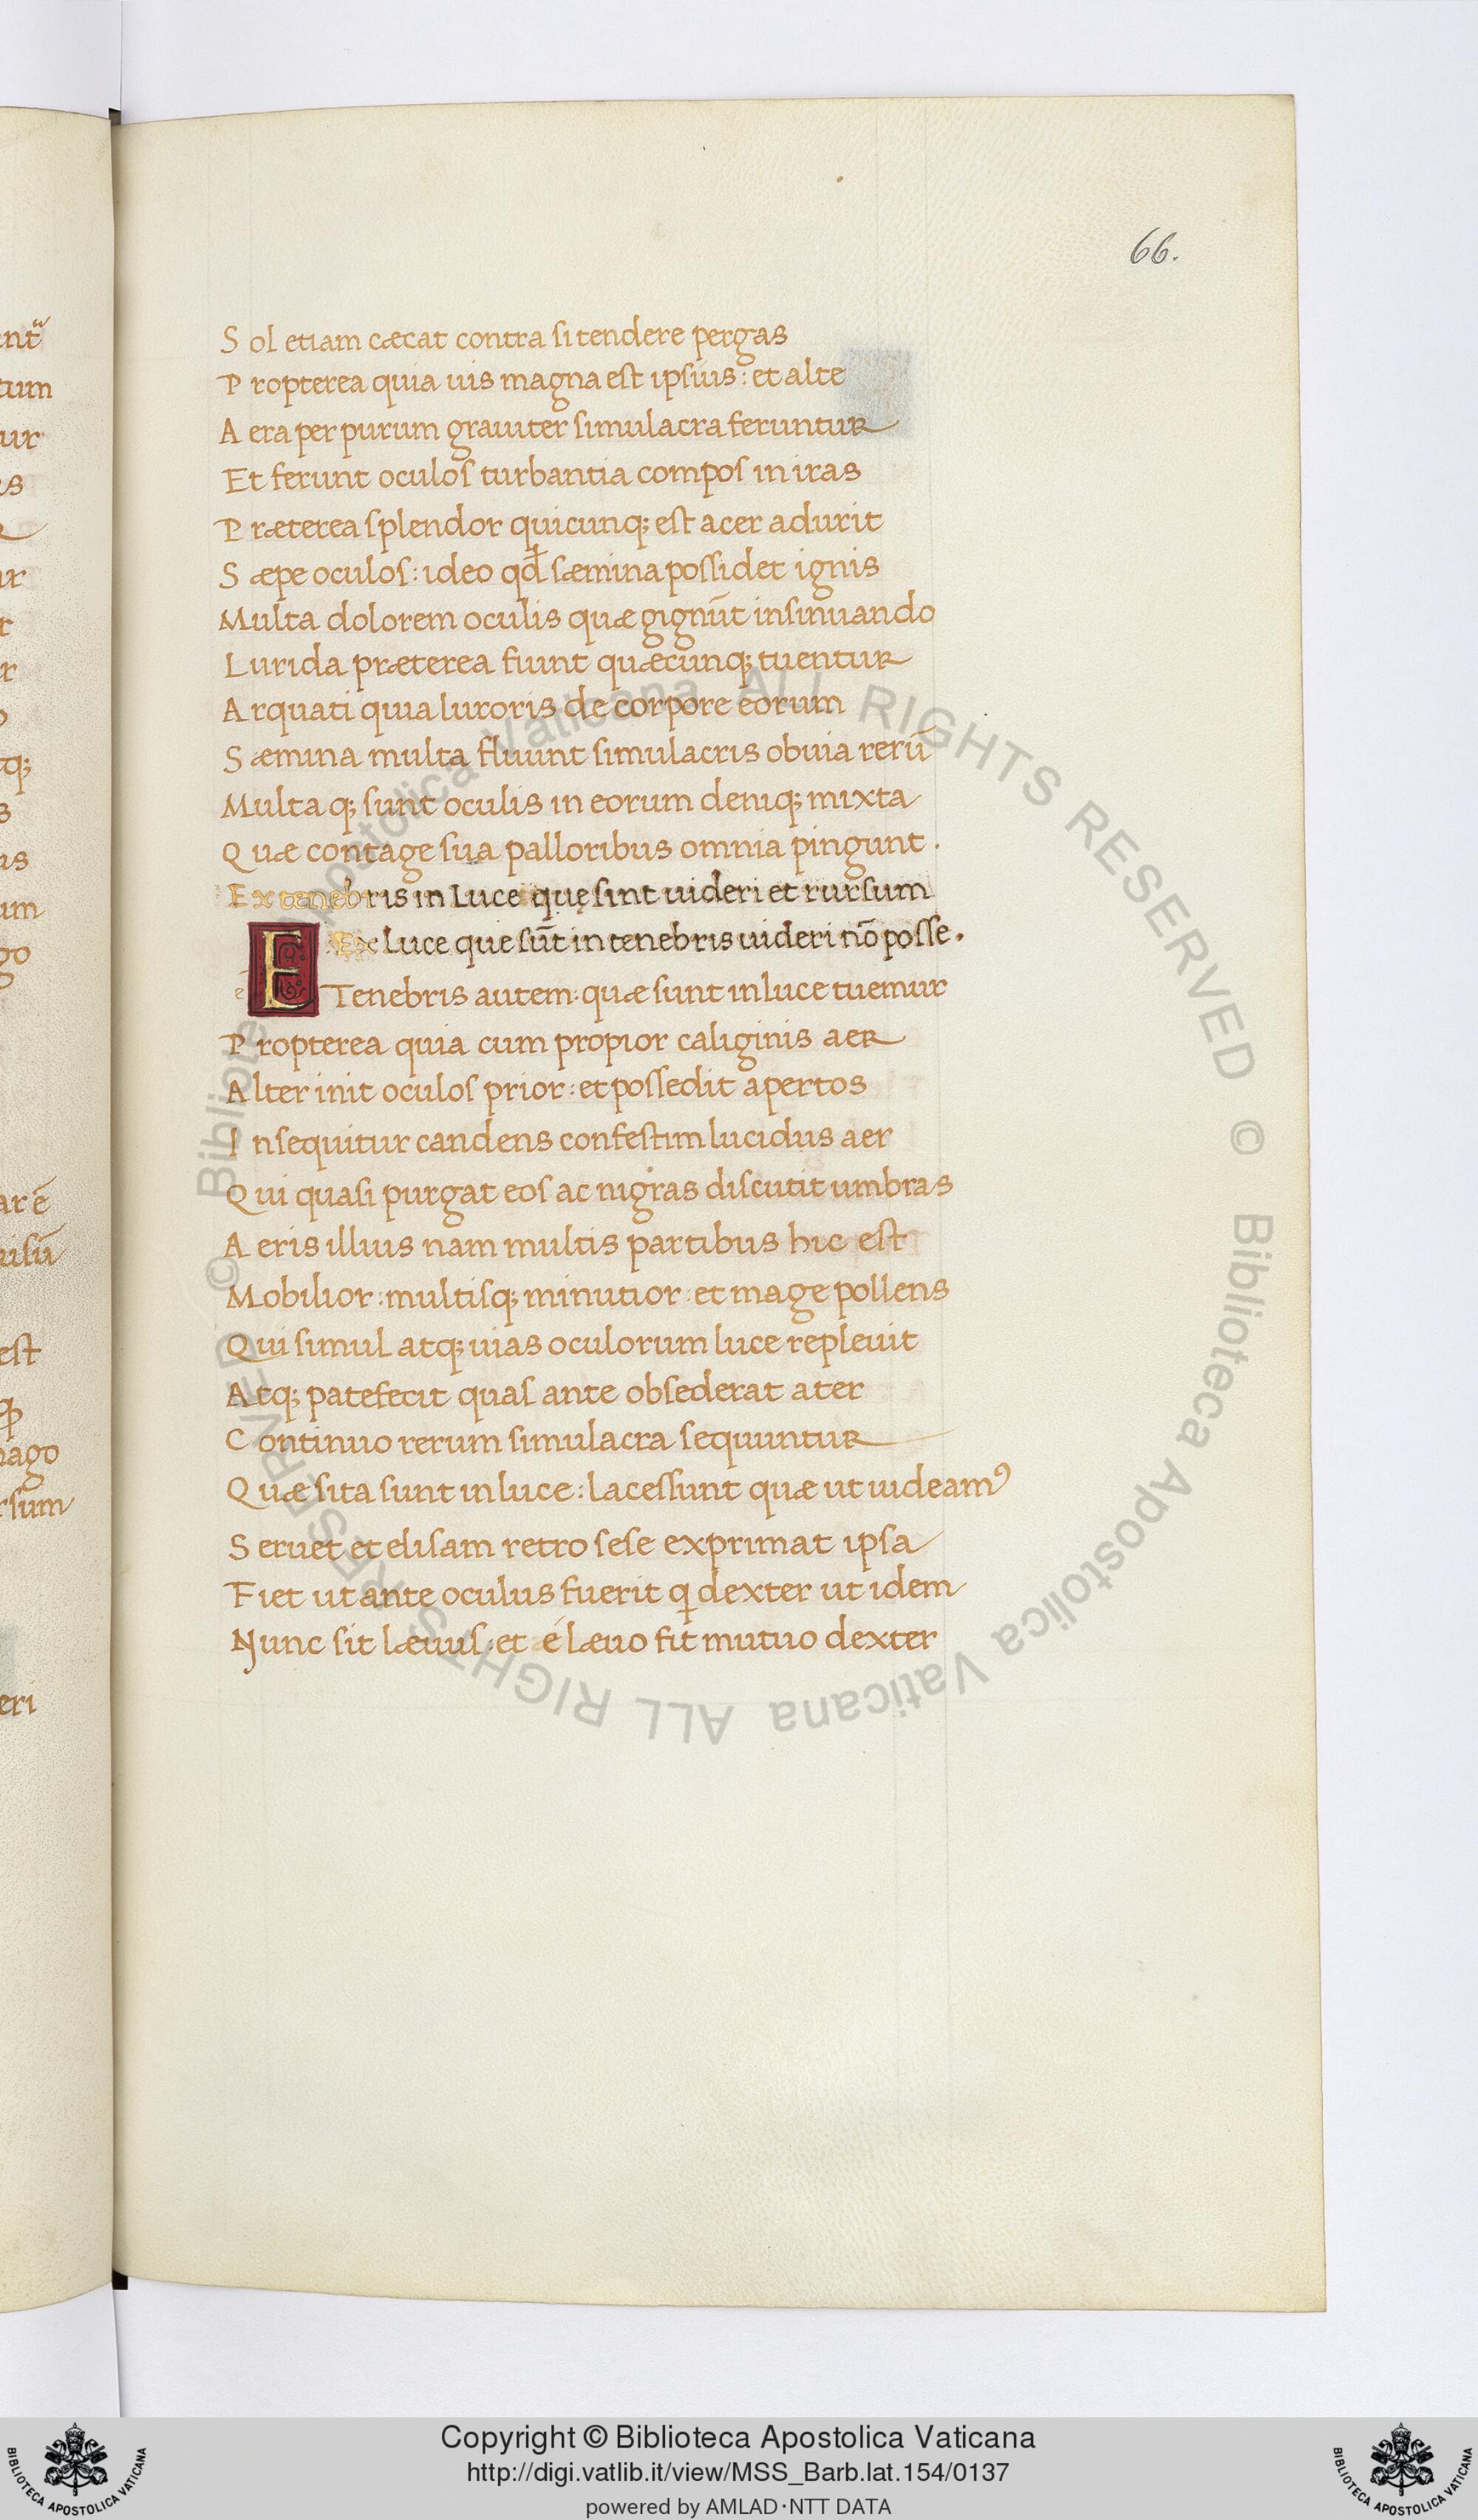 66.
Sol etiam cæcat contra si tendere pergas
Propterea quia uis magna est ipsius: et alte
Aera per purum grauiter simulacra feruntur
Et ferunt oculos turbantia compos in iras
Præterea splendor quicunq; est acer adurit
Sæpe oculos: ideo qđ sæmina possidet ignis
Multa dolorem oculis quæ gignūt insinuando
Lurida præterea fiunt quæcunq; tuentur
Arquati quia luroris de corpore eorum
Sæmina multa fluunt simulacris obuia rerū
Multaq; sunt oculis in eorum deniq; mixta
Quæ contage sua palloribus omnia pingunt.
Ex tenebris in Luce quę sint uideri et rursum
Ex Luce que sūt in tenebris uideri nō posse.
E Tenebris autem: quæ sunt in luce tuemur
Propterea quia cum propior caliginis aer
Alter init oculos prior: et possedit apertos
Insequitur candens confestim lucidus aer
Qui quasi purgat eos ac nigras discutit umbras
Aeris illius nam multis partibus hic est
Mobilior: multisq; minutior: et mage pollens
Qui simul atq; uias oculorum luce repleuit
Atq; patefecit quas ante obsederat ater
Continuo rerum simulacra sequuntur
Quæ sita sunt in luce: lacessunt quæ ut uideamꝰ
Seruet et elisam retro sese exprimat ipsa
Fiet ut ante oculus fuerit q dexter ut idem
Nunc sit læuus: et é læuo fit mutuo dexter
ntu
tum
ur
ur
r
r
tq;
us
um
go
ar ē
uisū
est
mago
rsum
eri
© Biblioteca Apostolica Vaticana ALL RIGHTS RESERVED © Biblioteca Apostolica Vaticana ALL RIGHTS RESERVED
Copyright © Biblioteca Apostolica Vaticana
http://digi.vatlib.it/view/MSS_Barb.lat.154/0137
powered by AMLAD·NTT DATA
BIBLIOTECA APOSTOLICA VATICANA
BIBLIOTECA APOSTOLICA VATICANA